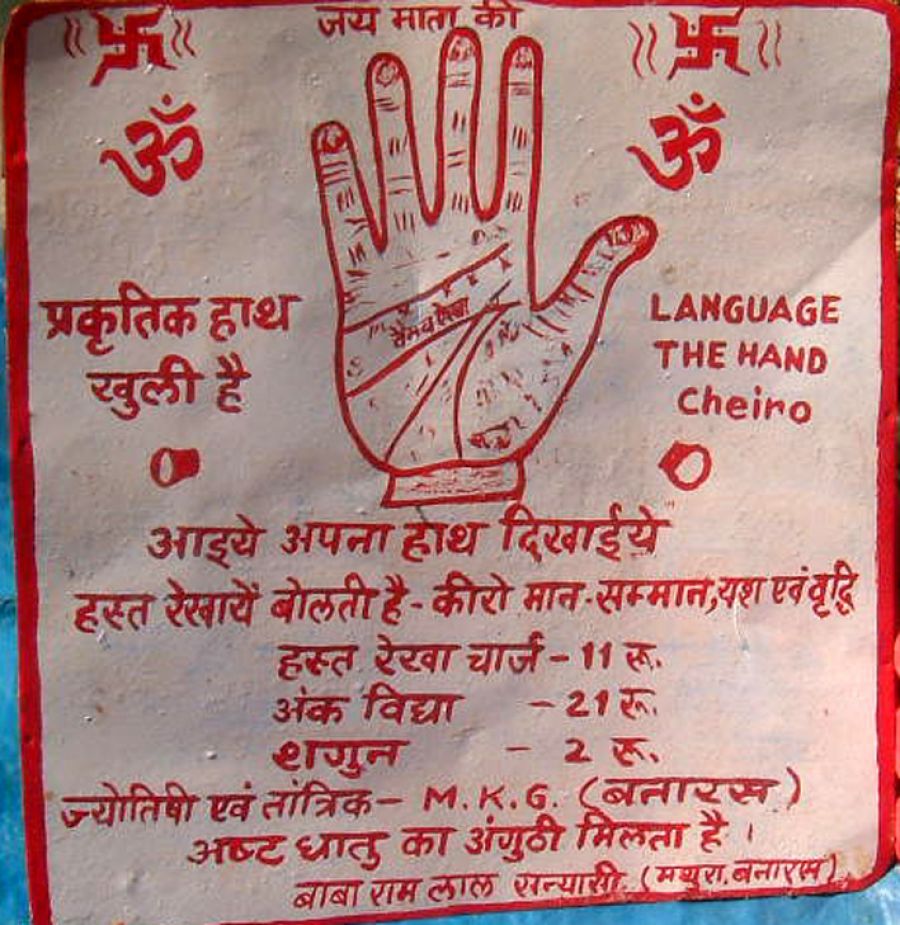 जय माता की
ॐ ॐ
प्रकृतिक हाथ
खुली है
LANGUAGE
THE HAND
Cheiro
आइये अपना हाथ दिखाईये
हस्त रेखायें बोलती है - कीरो मान-सम्मान, यश एवं वृद्धि
हस्त रेखा चार्ज - 11 रू.
अंक विद्या - 21 रू.
शगुन - 2 रू.
ज्योतिषी एवं तांत्रिक - M.K.G. (बनारस)
अष्ट धातु का अंगुठी मिलता है।
बाबा राम लाल सन्यासी (मथुरा, बनारस)